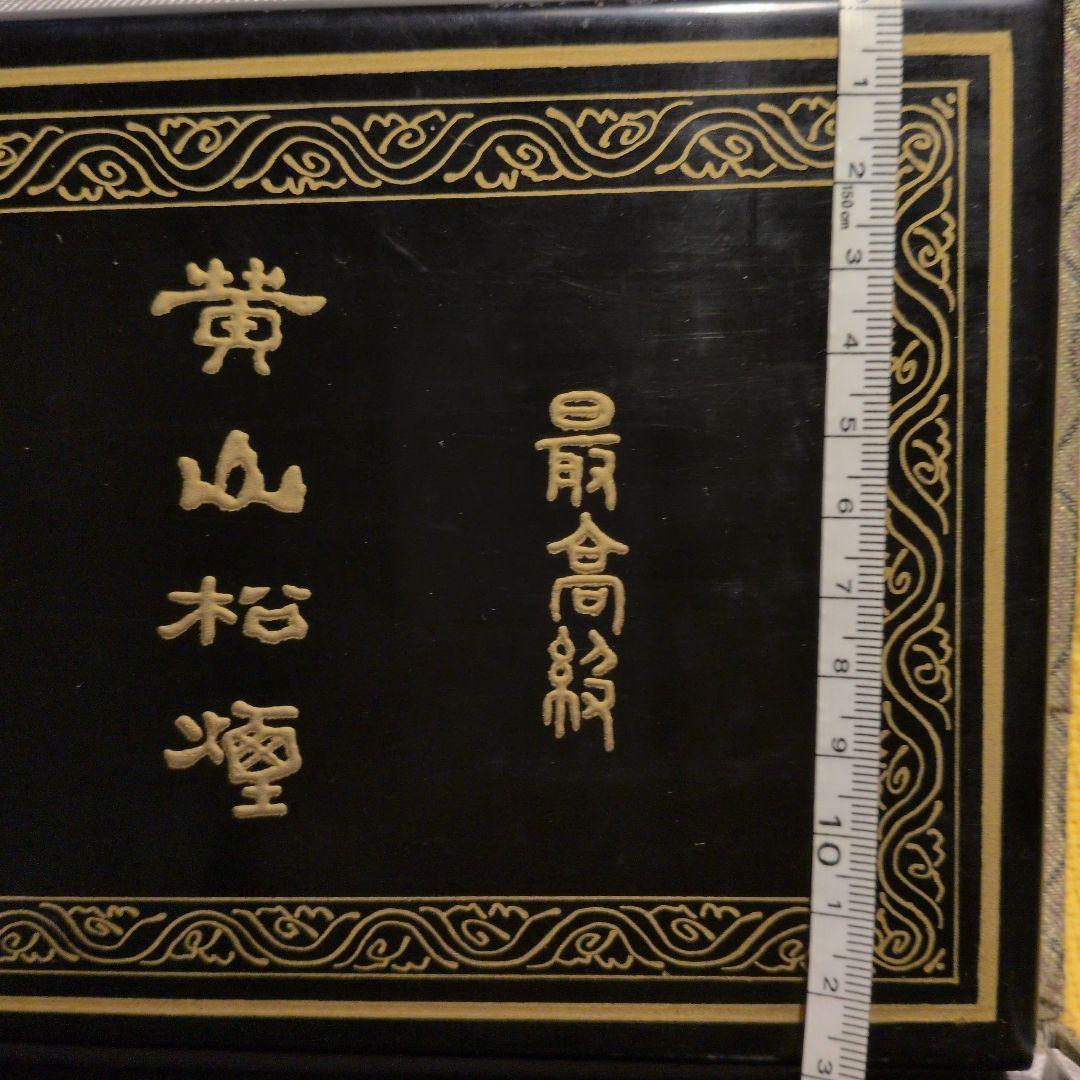 最高級
黄山松煙
1
2
150 cm
3
4
5
6
7
8
9
10
1
2
3